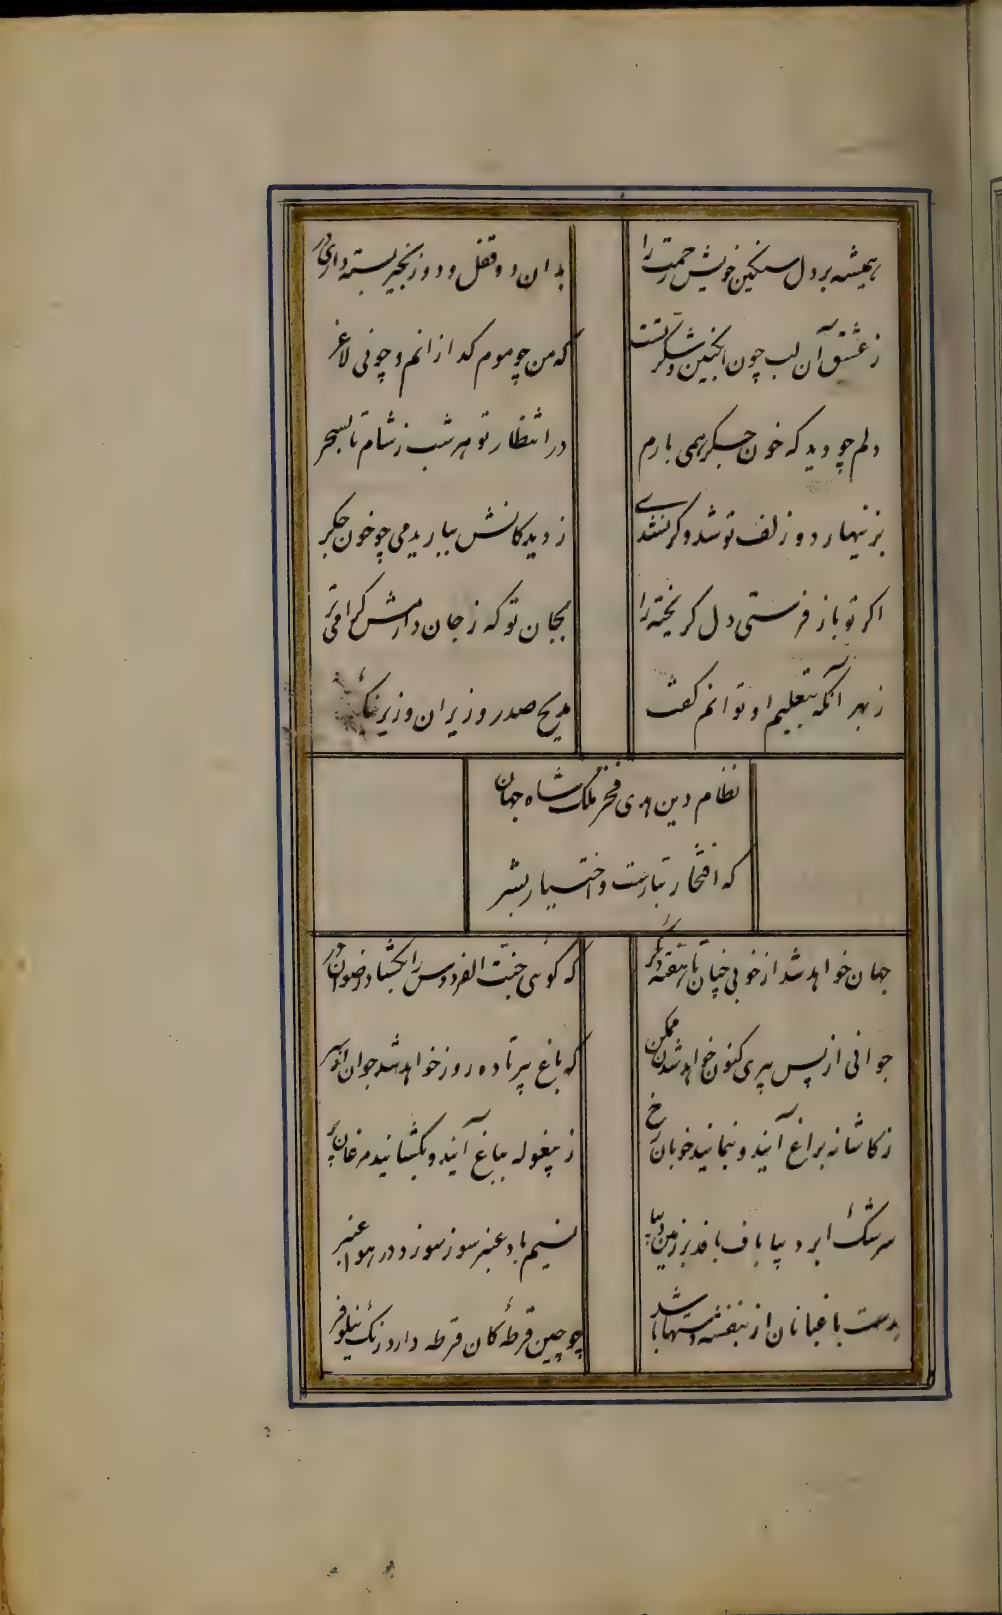 همیشه بر دل سنکین خویش رحمت را
بدان دو قفل و دو زنجیر بسته داری در
ز عشق آن لب چون انکبین و شکر تست
که من چو موم کدازانم و چو نی لاغر
دلم چو دید که خون جکر همی بارم
در انتظار تو هر شب ز شام تا بسحر
بزنیهار دو زلف تو شد و کر نشدی
ز دیدکانش بباریدمی چو خون جکر
اکر تو باز فرستی دل کریخته را
بجان تو که ز جان دارمش کرامی تر
ز بهر آنکه بتعلیم او توانم کفت
مدیح صدر وزیران وزیر
نظام دین هدی فخر ملک شاه جهان
که افتخار تبارست و اختیار بشر
جهان خواهد شد از خوبی چنان تا هفته دیکر
که کوئی جنت الفردوس را بکشاد رضوان در
جوانی از پس پیری کنون خواهد شدن ممکن
که باغ پیر تا ده روز خواهد شد جوان از سر
ز کاشانه براغ آیند و بنمایند خوبان رخ
ز بیغوله بباغ آیند و بکشایند مرغان پر
سرشک ابر دیبا باف بافد بر زمین دیبا
نسیم باد عنبر سوز سوزد در هوا عنبر
بدست باغبانان از بنفشه دستها باشد
چو چین قرطهٔ کان قرطه دارد رنک نیلوفر